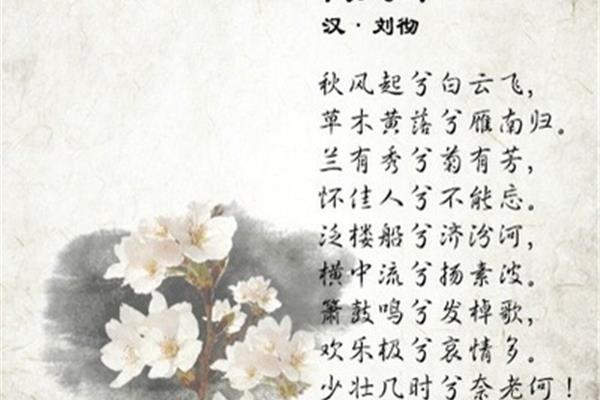 汉·刘彻
秋风起兮白云飞，
草木黄落兮雁南归。
兰有秀兮菊有芳，
怀佳人兮不能忘。
泛楼船兮济汾河，
横中流兮扬素波。
箫鼓鸣兮发棹歌，
欢乐极兮哀情多。
少壮几时兮奈老何！